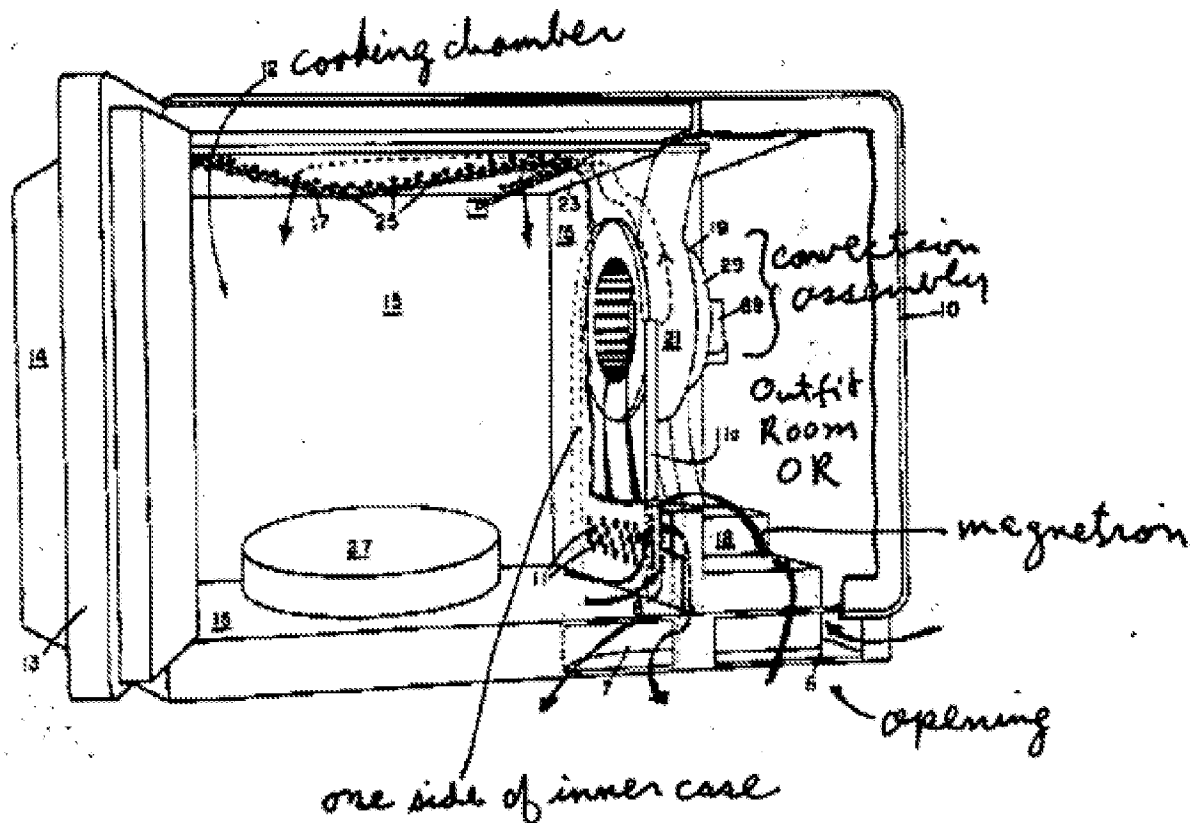 12 cooking chamber
17
25
23
15
14
19
29
convection
assembly
10
21
Outfit
Room
OR
11a
18
magnetron
27
11
15
13
7
opening
one side of inner case